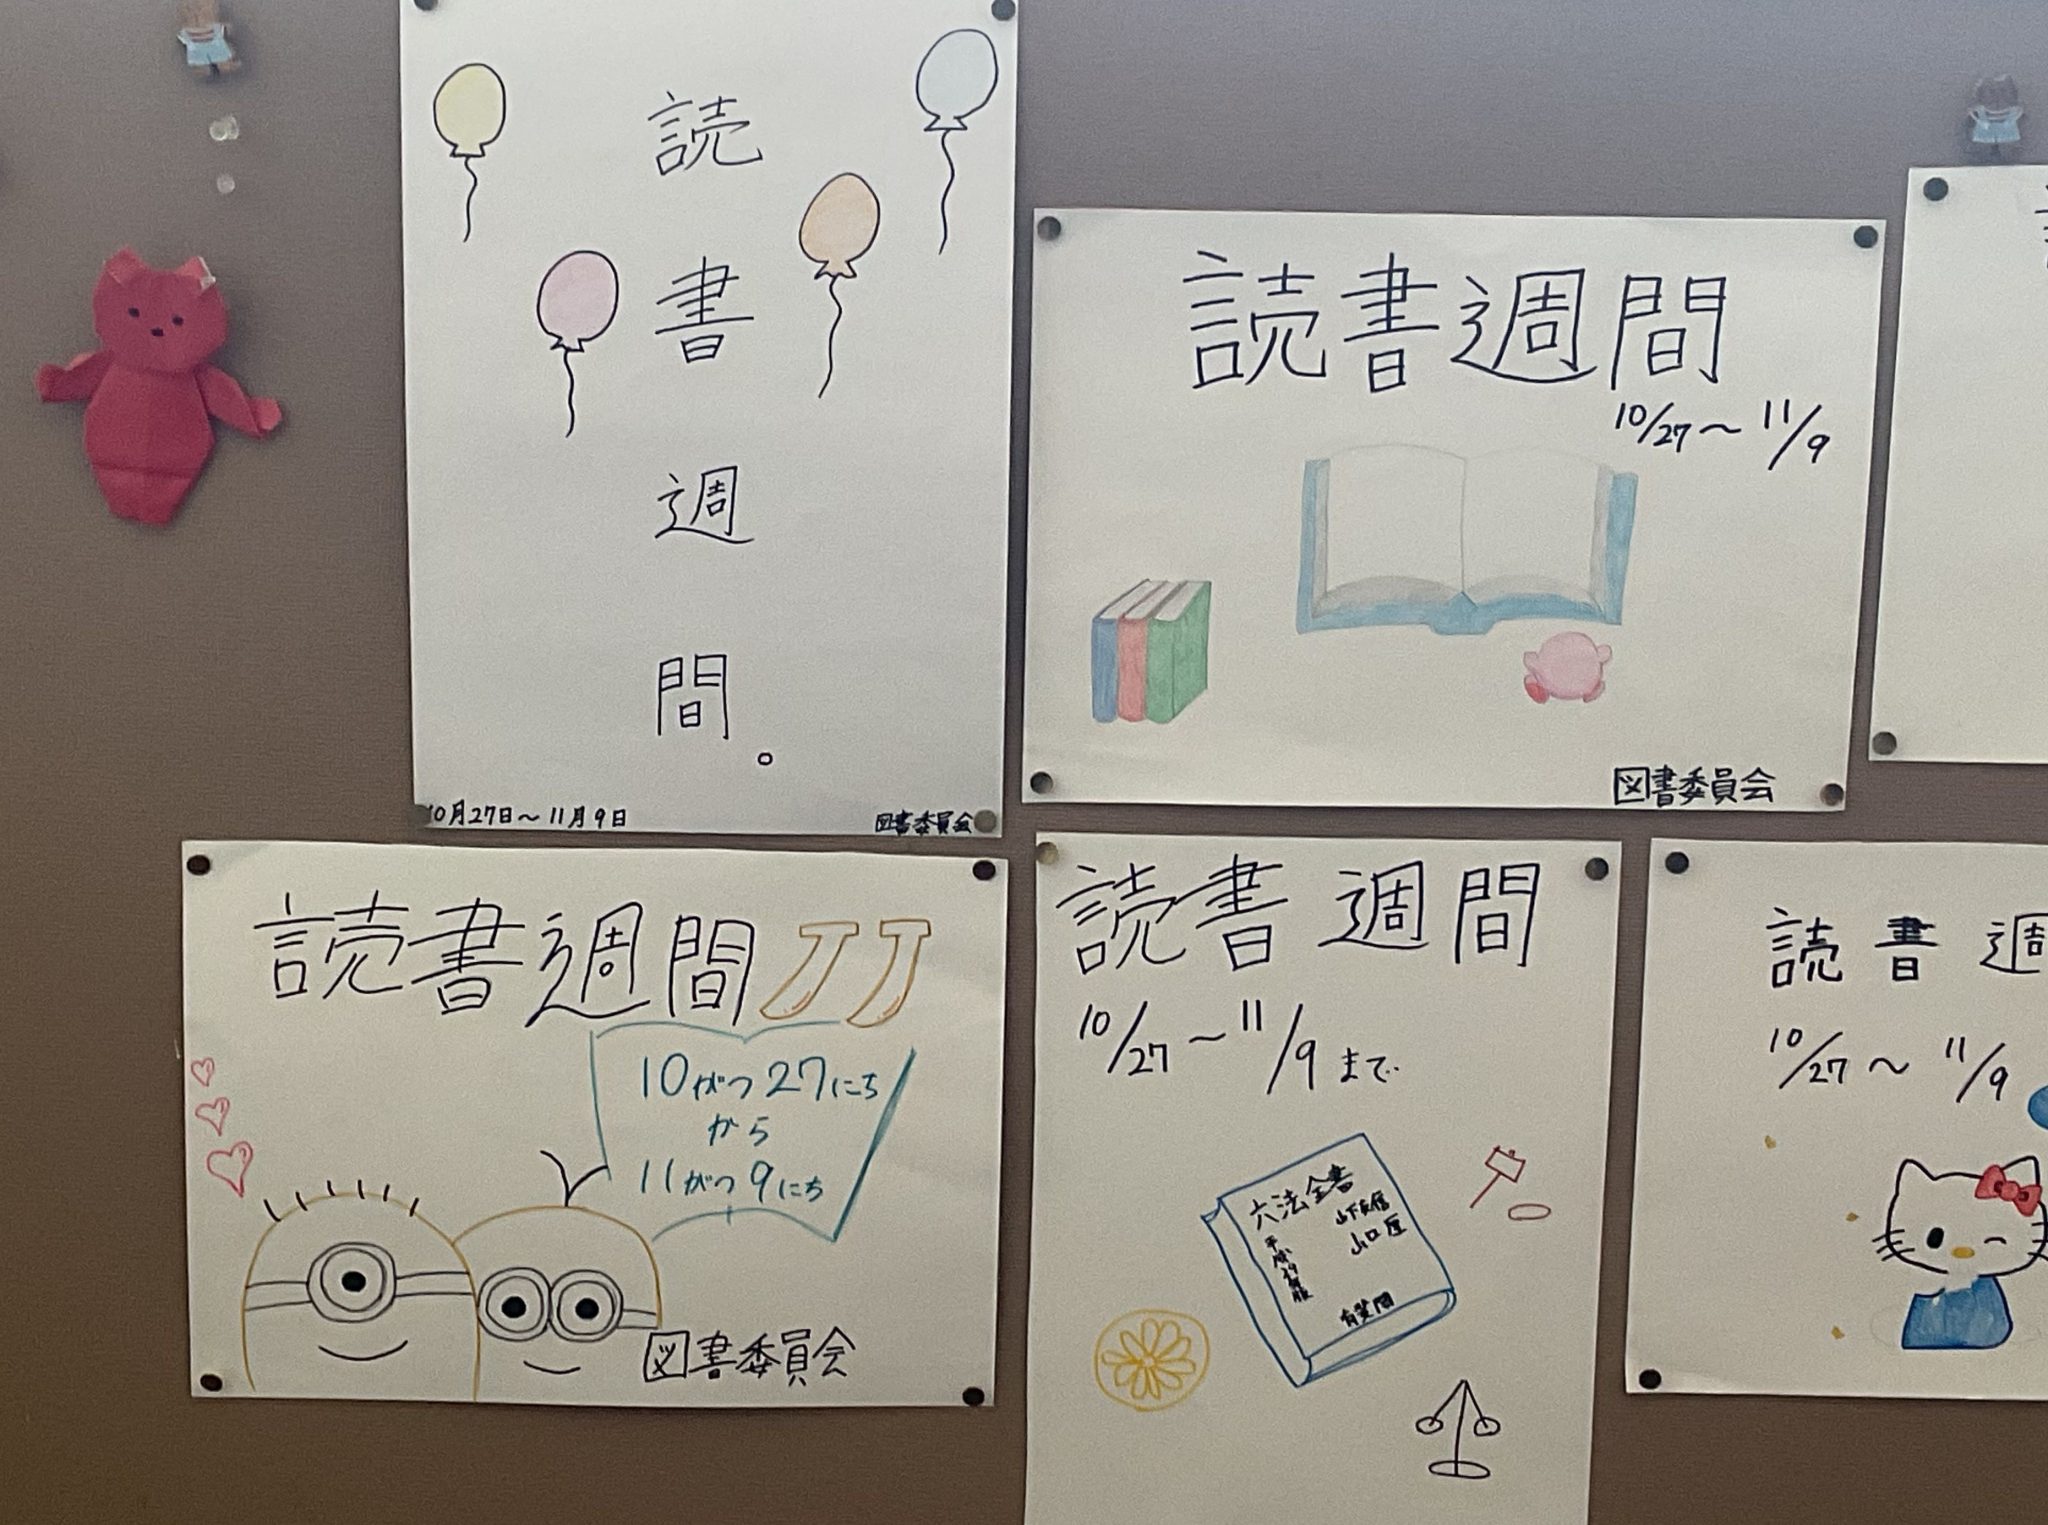 読書週間。
10月27日～11月9日
図書委員会
読書週間
10/27～11/9
図書委員会
読書週間!!
10がつ27にち
から
11がつ9にち
図書委員会
読書週間
10/27～11/9まで
六法全書
山口厚
有斐閣
読書週
10/27～11/9